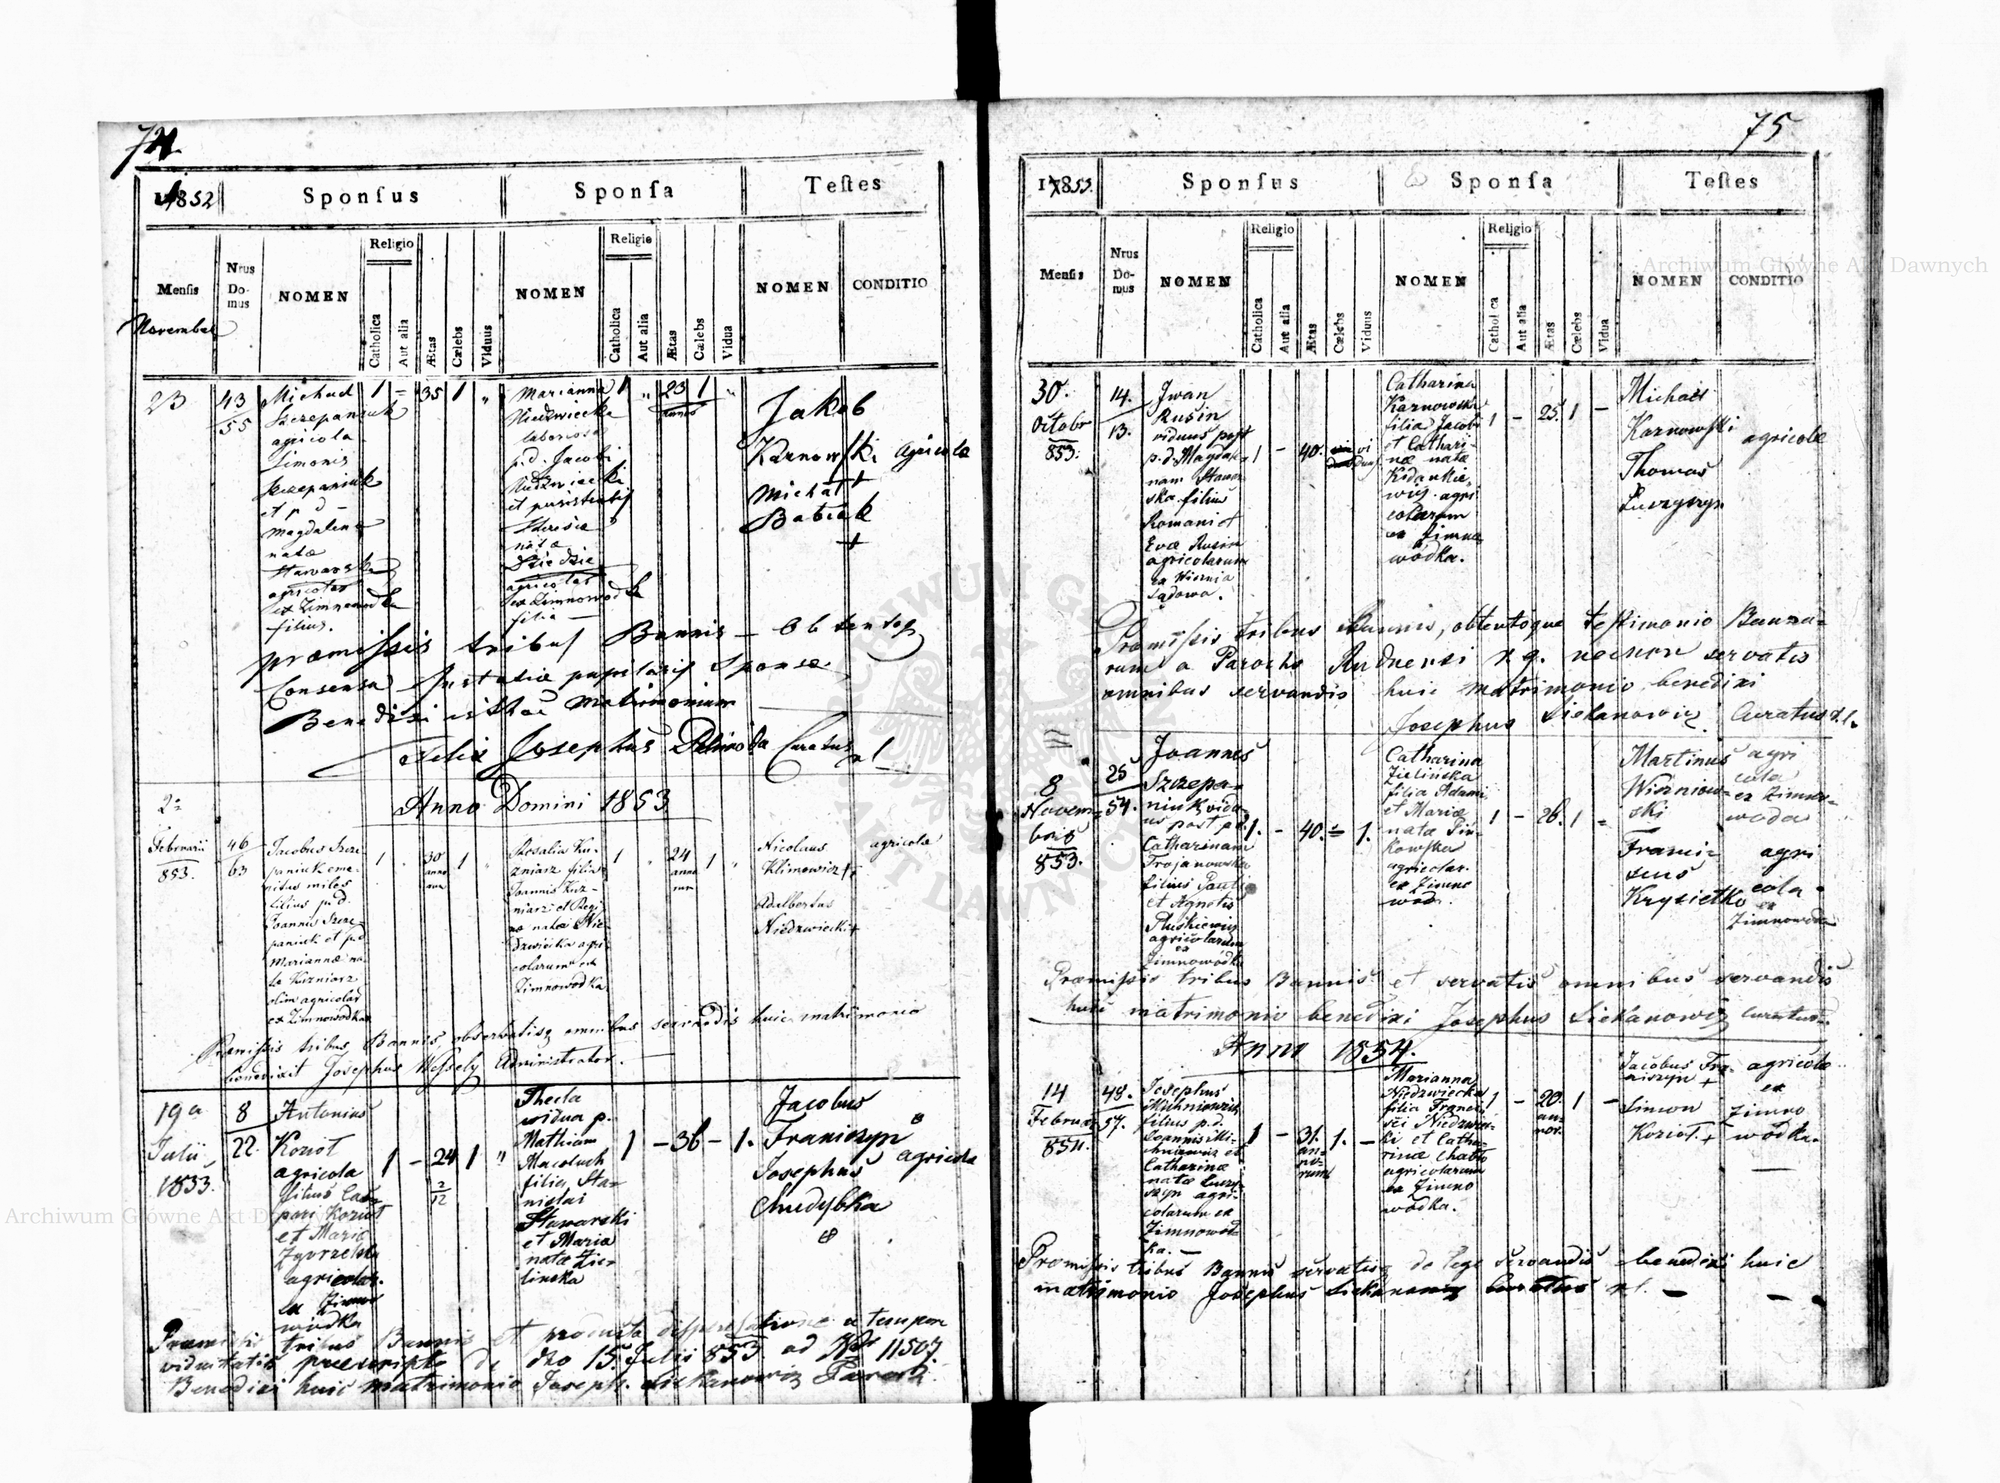 74
1852
Sponsus
Sponsa
Testes
Mensis
Nrus Domus
NOMEN
Religio
Catholica
Aut alia
Ætas
Cælebs
Viduus
NOMEN
Religio
Catholica
Aut alia
Ætas
Cælebs
Vidua
NOMEN
CONDITIO
November
23
43
55
Michael
Szczepaniuk
agricola
Simonis
Szczepaniuk
et p d
Magdalena
natæ
Stawarska
agricolar
ex Zimnowodka
filius.
1 - 35 1 "
Marianna
Niedzwiecka
laboriosa
p. d. Jacobi
Niedzwiecki
et
natæ
Dziedzic
agricolar
ex Zimnowodka
filia
1 " 23 1 "
annor
Jakob
Karnowski agricola
+
Michał
Babiak
+
præmissis tribus Bannis obtentoq
Consensu pupilaris Sponsæ
Benedixi matrimonium
Felix Josephus Curatus rl
Anno Domini 1853
2
Februarii
853.
46
63
Jacobus Szcze
paniuk eme
ritus miles
filius p. d.
Joannis Szcze
paniuk et p. d
Mariannæ na
tæ Kuzniarz
olim agricolar
ex Zimnowodka
1 " 30 1 "
anno
rum
Rosalia Ku
zniarz filia
Joannis Kuz
niarz et Regi
næ natæ Nie
dzwiecka agri
colarum ex
Zimnowodka
1 " 24 1 "
anno
rum
Nicolaus agricola
Klimowicz +
Adalbertus
Niedzwiecki +
Præmissis tribus Bannis, observatisq omnibus servandis huic matrimonio
benedixit Josephus Wessely Administrator.
19a
Julii
1853.
8
22.
Antonius
Koziot
agricola
filius Cas
pari Koziot
et Mariæ
Zgorzelska
agricolar.
ex Zimno
wodka
1 - 24 1 "
2
12
Thecla
vidua p.
Mathiam
Macoluch
filia Sta
nislai
Stawarski
et Maria
nata Zie
linska
1 - 36 - 1.
Jacobus
Franiszyn
agricola
Josephus
Chudybka
Præmissis tribus Bannis et producta dispensatione a tempore
viduitatis præscripto de dto 15 Julii 853 ad Nr 11507.
Benedixi huic matrimonio Joseph. Siekanowicz
75
1853.
Sponsus
Sponsa
Testes
Mensis
Nrus Domus
NOMEN
Religio
Catholica
Aut alia
Ætas
Cælebs
Viduus
NOMEN
Religio
Catholica
Aut alia
Ætas
Cælebs
Vidua
NOMEN
CONDITIO
30.
Octobr
853.
14.
13.
Iwan
Rusin
viduus post
p. d. Magdale
nam Stawar
ska filius
Romani et
Evæ Rusin
agricolarum
ex Wiśnia
sądowa.
1 - 40.
Catharina
Karnowska
filia Jacobi
et Cathari
næ natæ
agri
colarum
ex Zimna
wódka.
1 - 25. 1 -
Michael
Karnowski agricolæ
Thomas
Luczyszyn
Præmissis tribus Bannis, obtentoque testimonio Banno
rum a Parocho Rudnensi r. g. necnon servatis
omnibus servandis huic matrimonio benedixi
Josephus Siekanowicz Curatus r. l.
8
Novem
bris
853.
25
54.
Joannes
Szczepa
niuk vidu
us post p. d.
Catharinam
Trojanowska
filius Pauli
et Agnetis
agricolarum
ex
Zimnowódka
1. - 40. 1.
Catharina
Zielińska
filia Adami
et Mariæ
natæ Sin
kowska
agricolar.
ex Zimno
wod.
1 - 26. 1 -
Martinus agri
cola
Wiśniow
ski
ex Zimno
woda
Francis
cus agri
cola
Krysietko ex
Zimnowoda
Præmissis tribus Bannis et servatis omnibus servandis
huic matrimonio benedixi Josephus Siekanowicz curatus
Anno 1854.
14
Februar
854.
48.
57.
Josephus
Michniewicz
filius p. d.
Joannis Mi
chniewicz et
Catharinæ
natæ Luczy
szyn agri
colarum ex
Zimnowod
ka.
1 - 31. 1. -
an
no
rum
Marianna
Niedzwiecka
filia Francis
sci Niedzwie
cki et Catha
rinæ
agricolarum
ex Zimno
wódka.
1 - 20. 1 -
an
nor.
Jacobus Fra
niszyn + agricolæ
ex
Simon Zimno
Koziot. + wódka.
Præmissis tribus Bannis servatisq de lege servandis benedixi huic
matrimonio Josephus Siekanowicz Curatus rl.
Archiwum Główne Akt Dawnych
Archiwum Główne Akt Dawnych
ARCHIWUM GŁÓWNE AKT DAWNYCH